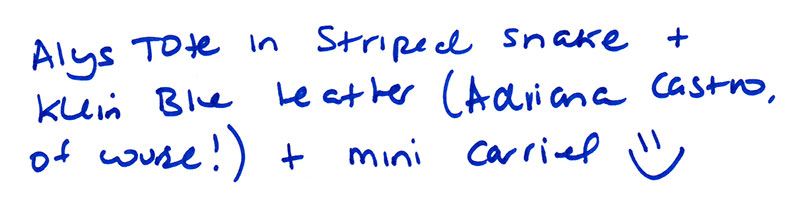 Alys Tote in Striped snake +
Klein Blue Leather (Adriana Castro,
of course!) + mini carriel